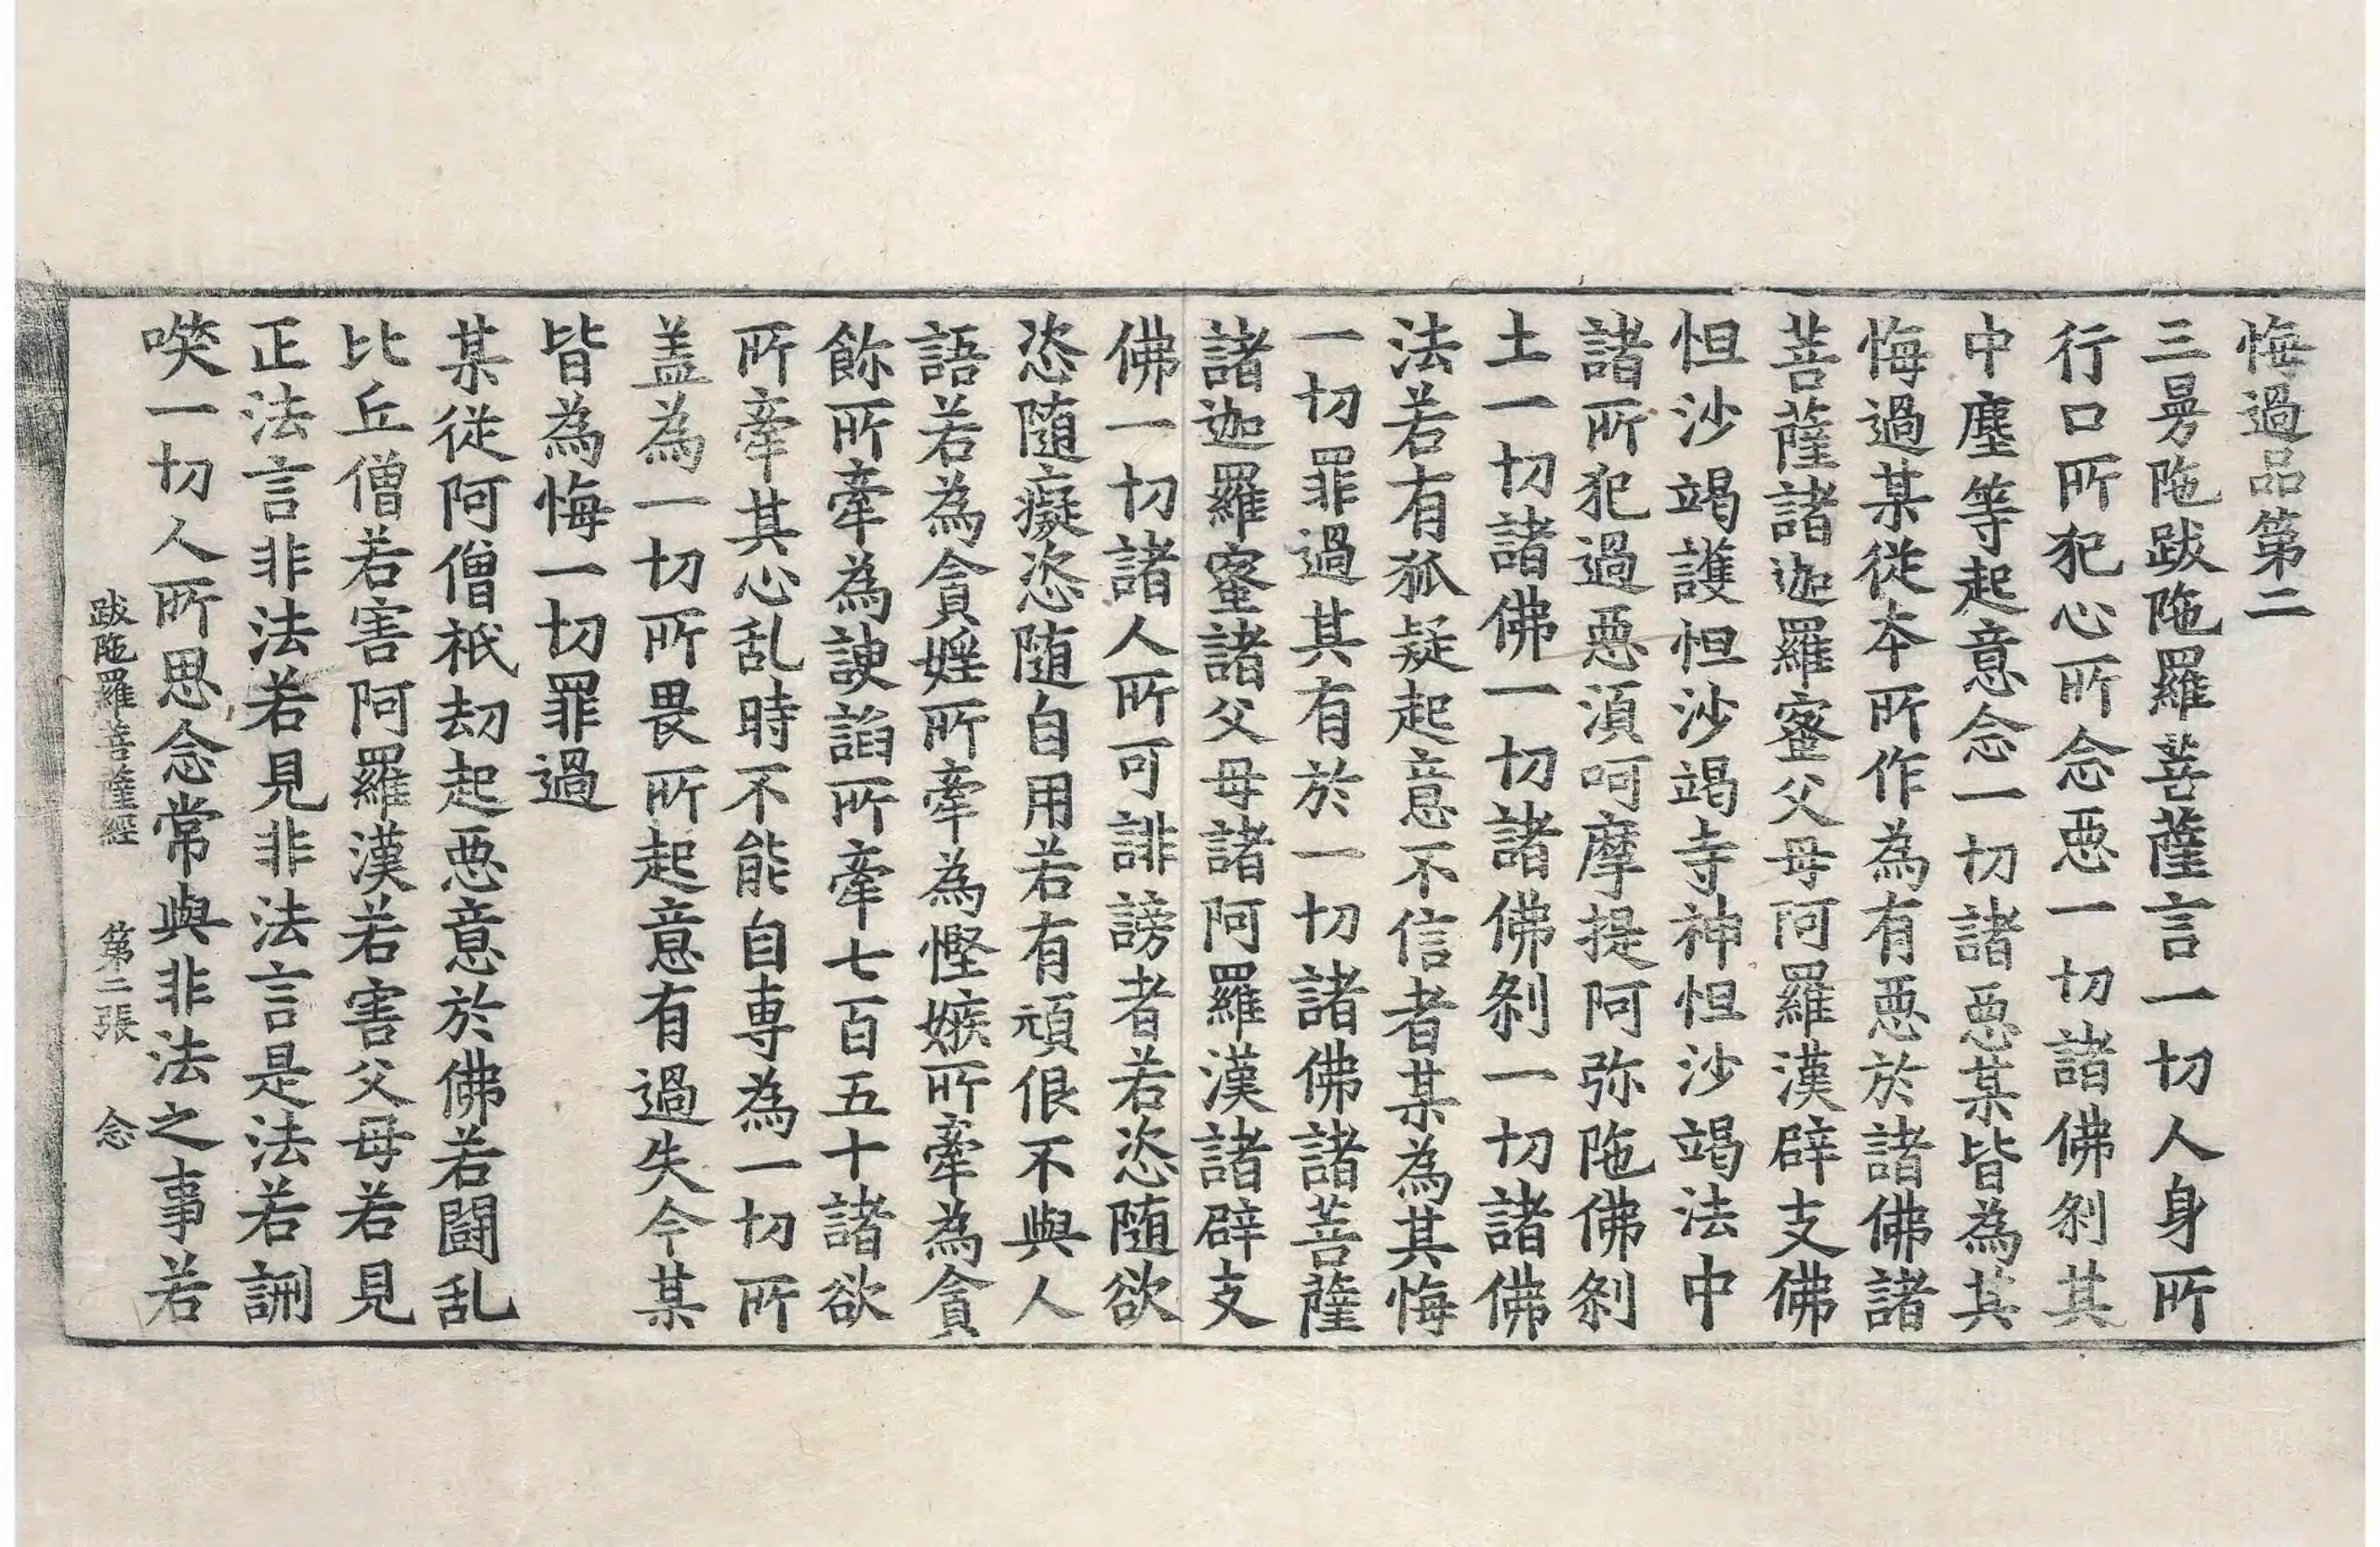 悔過品第二
三曼陁跋陁羅菩薩言一切人身所
行口所犯心所念惡一切諸佛刹其
中塵等起意念一切諸惡某皆為其
悔過某從本所作為有惡於諸佛諸
菩薩諸迦羅蜜父母阿羅漢辟支佛
怛沙竭護怛沙竭寺神怛沙竭法中
諸所犯過惡湏呵摩提阿弥陁佛刹
土一切諸佛一切諸佛刹一切諸佛
法若有狐疑起意不信者某為其悔
一切罪過其有於一切諸佛諸菩薩
諸迦羅蜜諸父母諸阿羅漢諸辟支
佛一切諸人所可誹謗者若恣随欲
恣随癡恣随自用若有頑佷不與人
語若為貪婬所牽為慳嫉所牽為貪
餘所牽為諛諂所牽七百五十諸欲
所牽其心乱時不能自専為一切所
盖為一切所畏所起意有過失今某
皆為悔一切罪過
某従阿僧祇劫起惡意於佛若鬪乱
比丘僧若害阿羅漢若害父母若見
正法言非法若見非法言是法若誹
㗛一切人所思念常與非法之事若
跋陁羅菩薩經　第二張　念